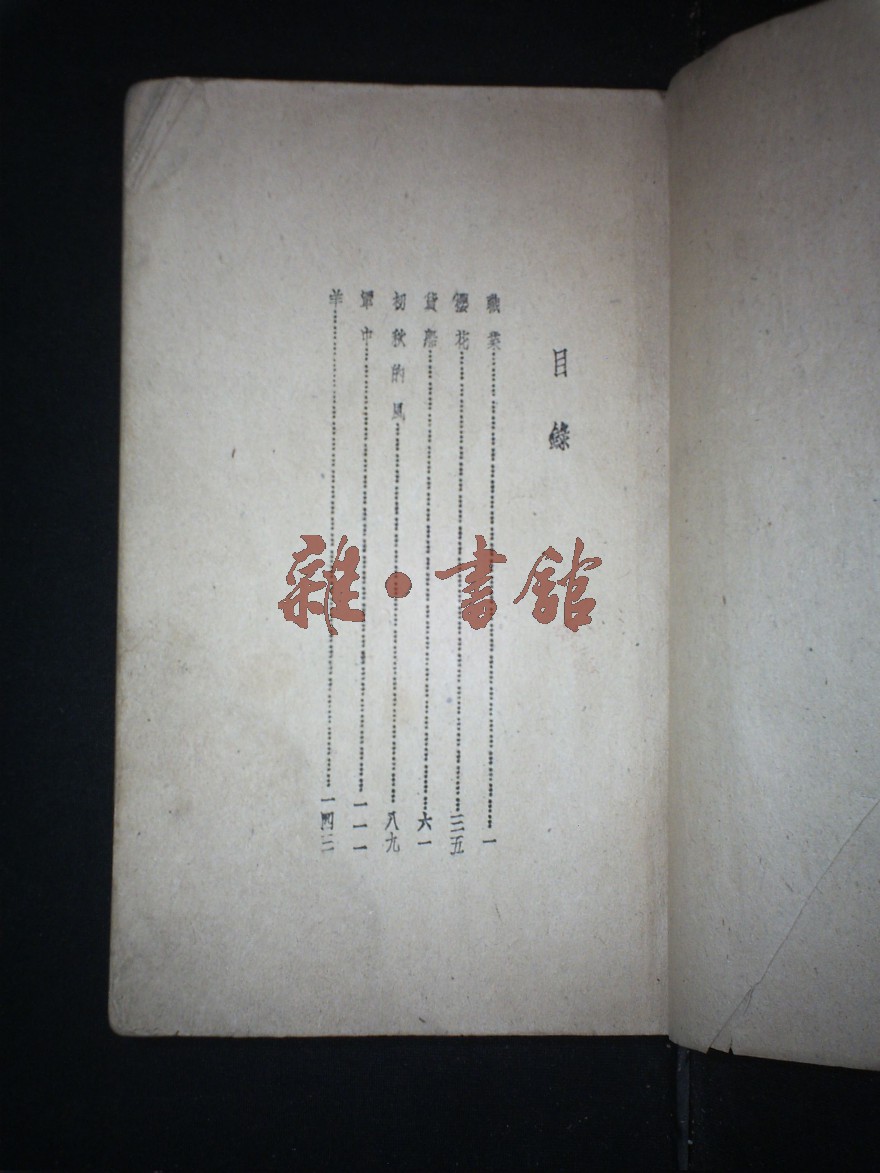 目錄
職業……………………一
櫻花……………………三五
貨船……………………六一
初秋的風……………………八九
軍中……………………一一一
羊……………………一四三
雜•書館